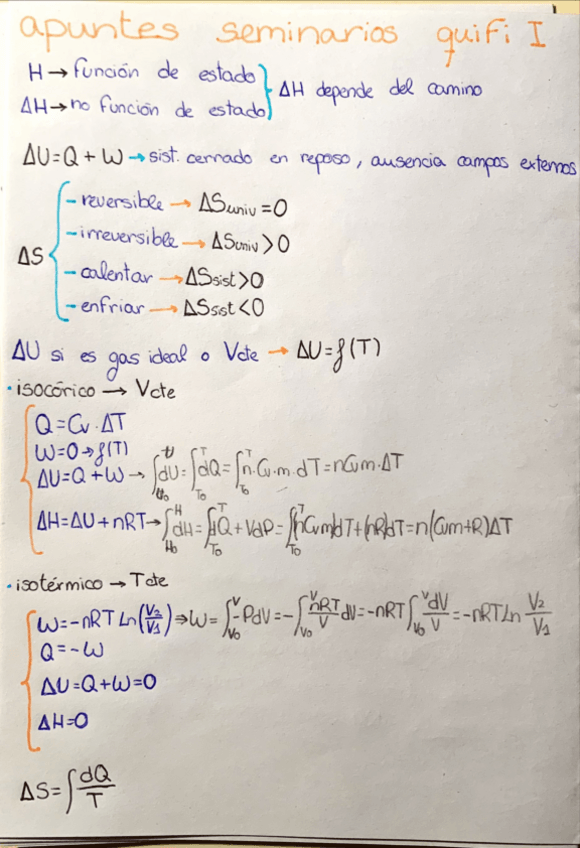 apuntes seminarios quifi I
H → función de estado } ΔH depende del camino
ΔH → no función de estado
ΔU = Q + W → sist. cerrado en reposo, ausencia campos externos
ΔS { - reversible → ΔSuniv = 0
- irreversible → ΔSuniv > 0
- calentar → ΔSsist > 0
- enfriar → ΔSsist < 0
ΔU si es gas ideal o Vcte → ΔU = f(T)
· isocórico → Vcte
Q = Cv · ΔT
W = 0 → f(T)
ΔU = Q + W → ∫_{U₀}^{U} dU = ∫_{T₀}^{T} dQ = ∫_{T₀}^{T} n · Cv · m · dT = nCvm · ΔT
ΔH = ΔU + nRT → ∫_{H₀}^{H} dH = ∫_{T₀}^{T} dQ + VdP = ∫_{T₀}^{T} (nCvm)dT + (nR)dT = n(Cvm + R)ΔT
· isotérmico → Tcte
W = -nRT Ln(V₂/V₁) ⇒ W = ∫_{V₀}^{V} -PdV = -∫_{V₀}^{V} nRT/V dV = -nRT ∫_{V₀}^{V} dV/V = -nRT Ln V₂/V₁
Q = -W
ΔU = Q + W = 0
ΔH = 0
ΔS = ∫ dQ/T